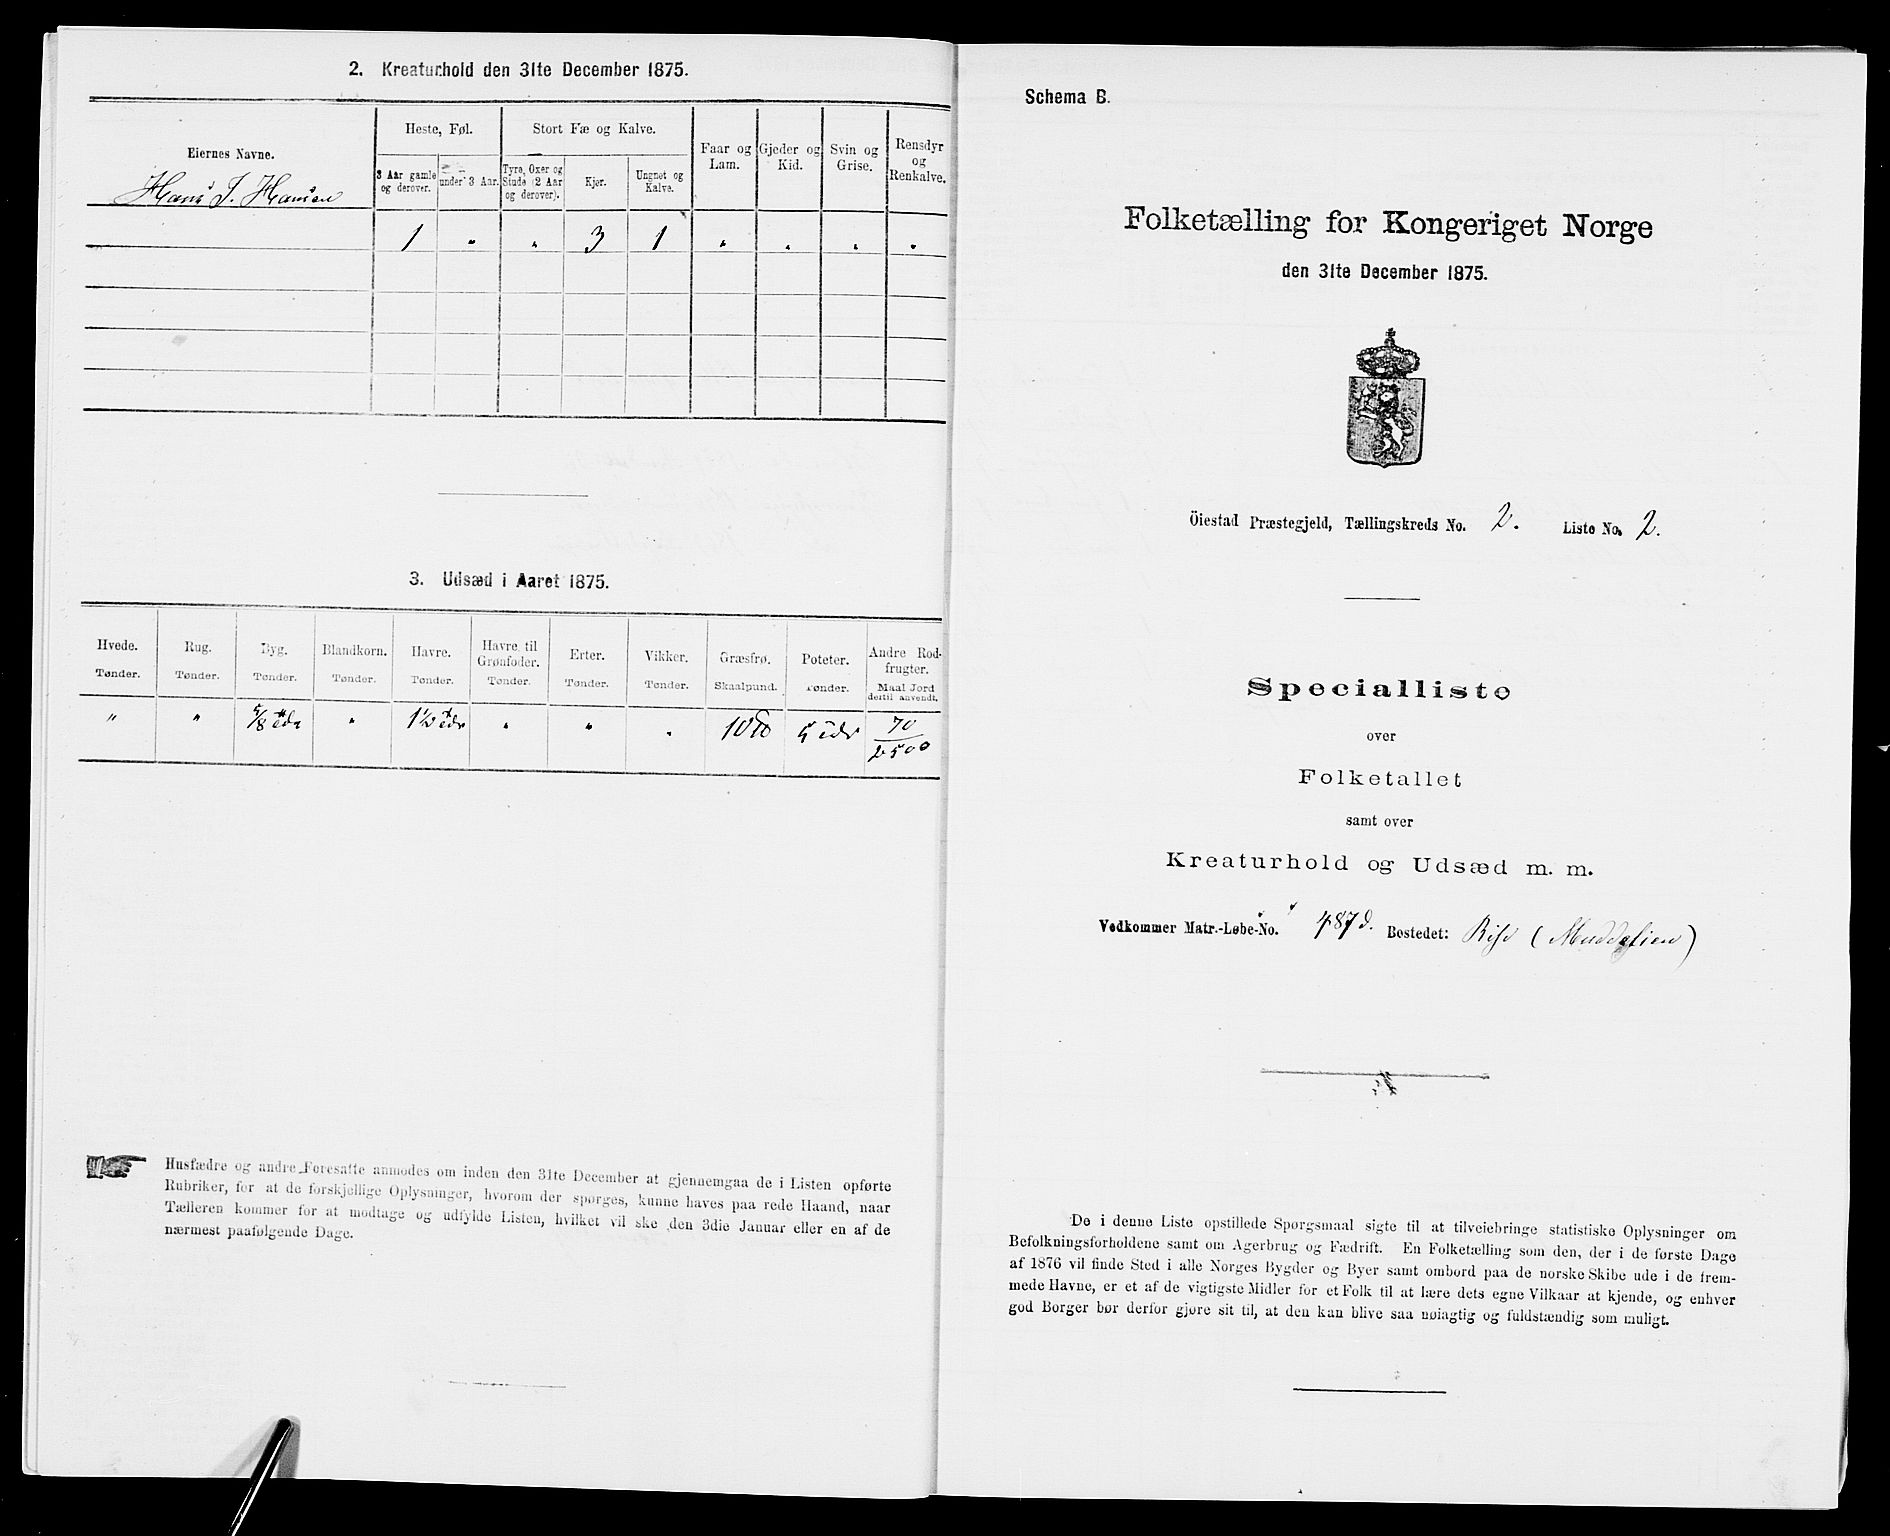 2. Kreaturhold den 31te December 1875.
Eiernes Navne.
Heste, Føl.
Stort Fæ og Kalve.
Faar og Lam.
Gjeder og Kid.
Svin og Grise.
Rensdyr og Renkalve.
3 Aar gamle og derover.
under 3 Aar.
Tyre, Oxer og Stude (2 Aar og derover).
Kjør.
Ungnet og Kalve.
Hans J. Hansen
1 " " 3 1 " " " "
3. Udsæd i Aaret 1875.
Hvede. Rug. Byg. Blandkorn. Havre. Havre til Grønfoder. Erter. Vikker. Græsfrø. Poteter. Andre Rodfrugter.
Tønder. Tønder. Tønder. Tønder. Tønder. Tønder. Tønder. Tønder. Skaalpund. Tønder. Maal Jord dertil anvendt.
" " 5/8 " 1½ " " " 10 5 70/2500
Husfædre og andre Foresatte anmodes om inden den 31te December at gjennemgaa de i Listen opførte
Rubriker, for at de forskjellige Oplysninger, hvorom der spørges, kunne haves paa rede Haand, naar
Tælleren kommer for at modtage og udfylde Listen, hvilket vil ske den 3die Januar eller en af de
nærmest paafølgende Dage.
Schema B.
Folketælling for Kongeriget Norge
den 31te December 1875.
Öiestad Præstegjeld, Tællingskreds No. 2. Liste No. 2.
Specialliste
over
Folketallet
samt over
Kreaturhold og Udsæd m. m.
Vedkommer Matr.-Løbe-No. 487d. Bostedet: Rise (
De i denne Liste opstillede Spørgsmaal sigte til at tilveiebringe statistiske Oplysninger om
Befolkningsforholdene samt om Agerbrug og Fædrift. En Folketælling som den, der i de første Dage
af 1876 vil finde Sted i alle Norges Bygder og Byer samt ombord paa de norske Skibe ude i de frem-
mede Havne, er et af de vigtigste Midler for et Folk til at lære dets egne Vilkaar at kjende, og enhver
god Borger bør derfor gjøre sit til, at den kan blive saa nøiagtig og fuldstændig som muligt.